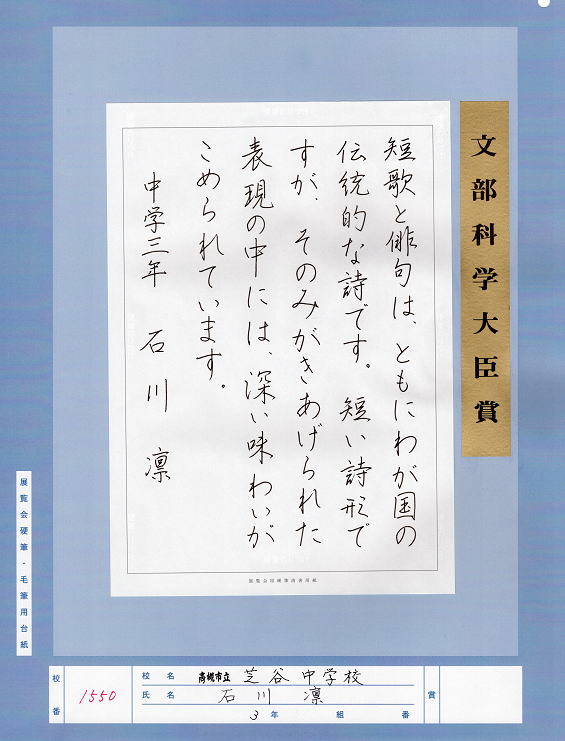 文部科学大臣賞
短歌と俳句は、ともにわが国の
伝統的な詩です。短い詩形で
すが、そのみがきあげられた
表現の中には、深い味わいが
こめられています。
中学三年 石川 凛
展覧会用硬筆清書用紙
展覧会硬筆・毛筆用台紙
校番 1550
校名 高槻市立 芝谷中学校
氏名 石川 凛
3年 組 番
賞